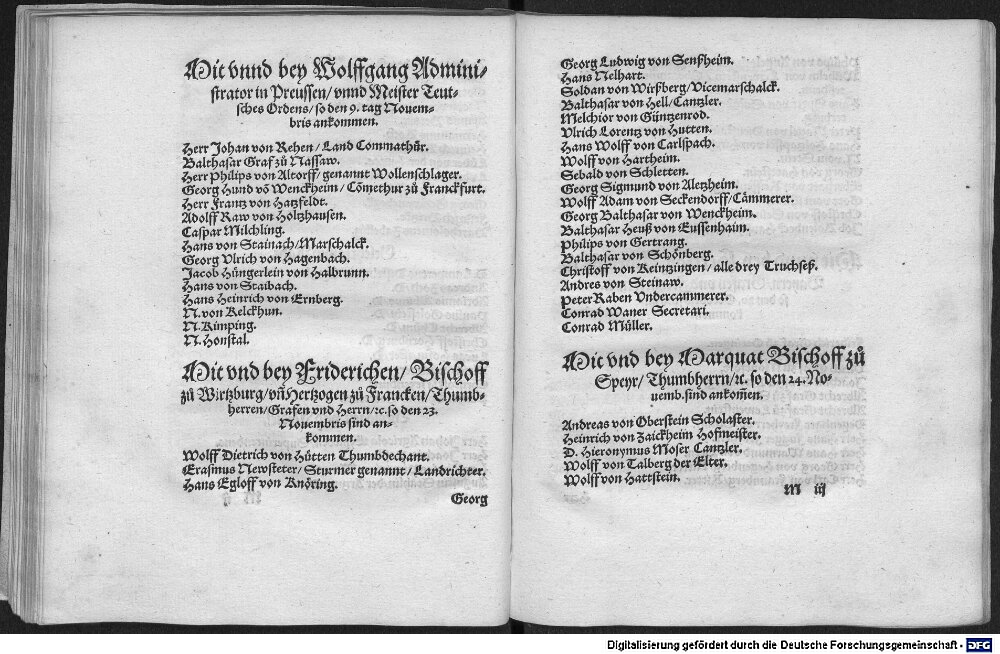 Mit vnnd bey Wolffgang Admini-
strator in Preussen/ vnnd Meister Teut-
sches Ordens/ so den 9. tag Nouem-
bris ankommen.
Herr Johan von Rehen/ Land Commathür.
Balthasar Graf zů Nassaw.
Herr Philips von Altorff/ genannt Wollenschlager.
Georg Hund võ Wenckheim/ Cõmethur zů Franckfurt.
Herr Frantz von Hatzfeldt.
Adolff Raw von Holtzhausen.
Caspar Milchling.
Hans von Stainach/ Marschalck.
Georg Vlrich von Hagenbach.
Jacob Hüngerlein von Halbrunn.
Hans von Staibach.
Hans Heinrich von Ernberg.
N. von Kelckhun.
N. Kimping.
N. Honstal.
Mit vnd bey Friderichen/ Bischoff
zů Wirtzburg/ vñ Hertzogen zů Francken/ Thumb-
herren/ Grafen vnd Herrn/ ꝛc. so den 23.
Nouembris sind an-
kommen.
Wolff Dietrich von Hütten Thumbdechant.
Erasmus Newsteter/ Sturmer genannt/ Landrichter.
Hans Egloff von Knöring.
Georg
Georg Ludwig von Senßheim.
Hans Nelhart.
Soldan von Wirßberg/ Vicemarschalck.
Balthasar von Hell/ Cantzler.
Melchior von Güntzenrod.
Vlrich Lorentz von Hutten.
Hans Wolff von Carlspach.
Wolff von Hartheim.
Sebald von Schletten.
Georg Sigmund von Alezheim.
Wolff Adam von Seckendorff/ Cämmerer.
Georg Balthasar von Wenckheim.
Balthasar Heuß von Eussenhaim.
Philips von Gertrang.
Balthasar von Schönberg.
Christoff von Keintzingen/ alle drey Truchseß.
Andres von Steinaw.
Peter Raben Vndercammerer.
Conrad Waner Secretari.
Conrad Müller.
Mit vnd bey Marquat Bischoff zů
Speyr/ Thumbherrn/ ꝛc. so den 24. No-
uemb. sind ankom̃en.
Andreas von Oberstein Scholaster.
Heinrich von Zaickheim Hofmeister.
D. Hieronymus Moser Cantzler.
Wolff von Talberg der Elter.
Wolff von Hattstein.
M iij
Digitalisierung gefördert durch die Deutsche Forschungsgemeinschaft - DFG